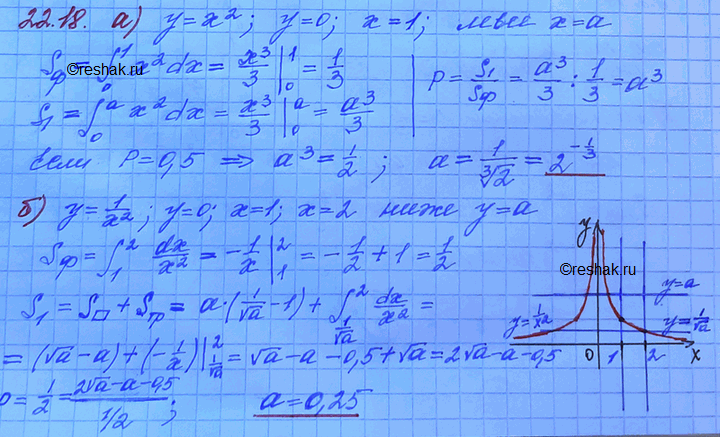 22.18. а) y = x²; y = 0; x = 1; левее x = a
Sф = ∫₀¹ x² dx = x³/3 |₀¹ = 1/3
©reshak.ru
S₁ = ∫₀ᵃ x² dx = x³/3 |₀ᵃ = a³/3
P = S₁/Sф = a³/3 : 1/3 = a³
Если P = 0,5 ⇒ a³ = 1/2; a = 1/∛2 = 2^(-1/3)
б) y = 1/x²; y = 0; x = 1; x = 2 ниже y = a
Sф = ∫₁² dx/x² = -1/x |₁² = -1/2 + 1 = 1/2
S₁ = S□ + Sтр = a·(1/√a - 1) + ∫_(1/√a)^2 dx/x² =
= (√a - a) + (-1/x)|_(1/√a)^2 = √a - a - 0,5 + √a = 2√a - a - 0,5
P = 1/2 = (2√a - a - 0,5)/(1/2); a = 0,25
y
©reshak.ru
y = a
y = 1/x²
y = 1/√a
0 1 2 x